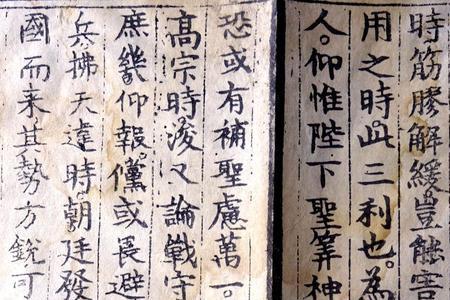 時筋膠解緩豈能
用之時此三利也。為
人。仰惟陛下聖筭神
恐或有補聖慮萬一。
高宗時浚又論戰守
庶幾仰報。儻或長避
兵拂天違時。朝廷發
國而来其勢方銳可